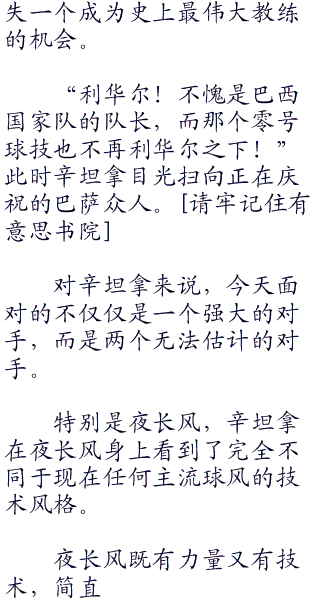 失一个成为史上最伟大教练
的机会。
“利华尔！不愧是巴西
国家队的队长，而那个零号
球技也不再利华尔之下！”
此时辛坦拿目光扫向正在庆
祝的巴萨众人。[请牢记住有
意思书院]
对辛坦拿来说，今天面
对的不仅仅是一个强大的对
手，而是两个无法估计的对
手。
特别是夜长风，辛坦拿
在夜长风身上看到了完全不
同于现在任何主流球风的技
术风格。
夜长风既有力量又有技
术，简直